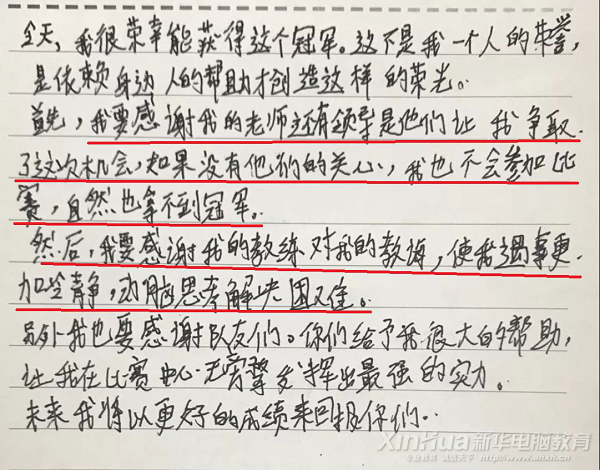 今天，我很荣幸能获得这个冠军。这不是我一个人的荣誉，
是依赖身边人的帮助才创造这样的荣光。
首先，我要感谢我的老师还有领导是他们让我争取
了这次机会，如果没有他们的关心，我也不会参加比
赛，自然也拿不到冠军。
然后，我要感谢我的教练对我的教诲，使我遇事更
加冷静，动脑思考解决困难。
另外我也要感谢队友们。你们给予我很大的帮助，
让我在比赛中心无旁骛发挥出最强的实力。
未来我将以更好的成绩来回报你们。
XinHua新华电脑教育
专业教育 诚信天下 http://www.xhce.com